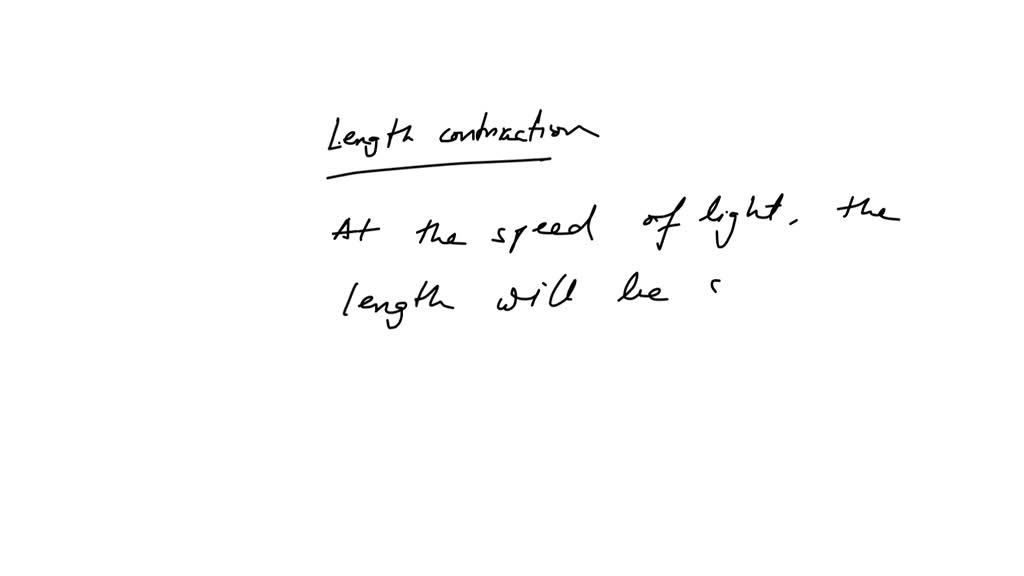 Length contraction
At the speed of light, the
length will be